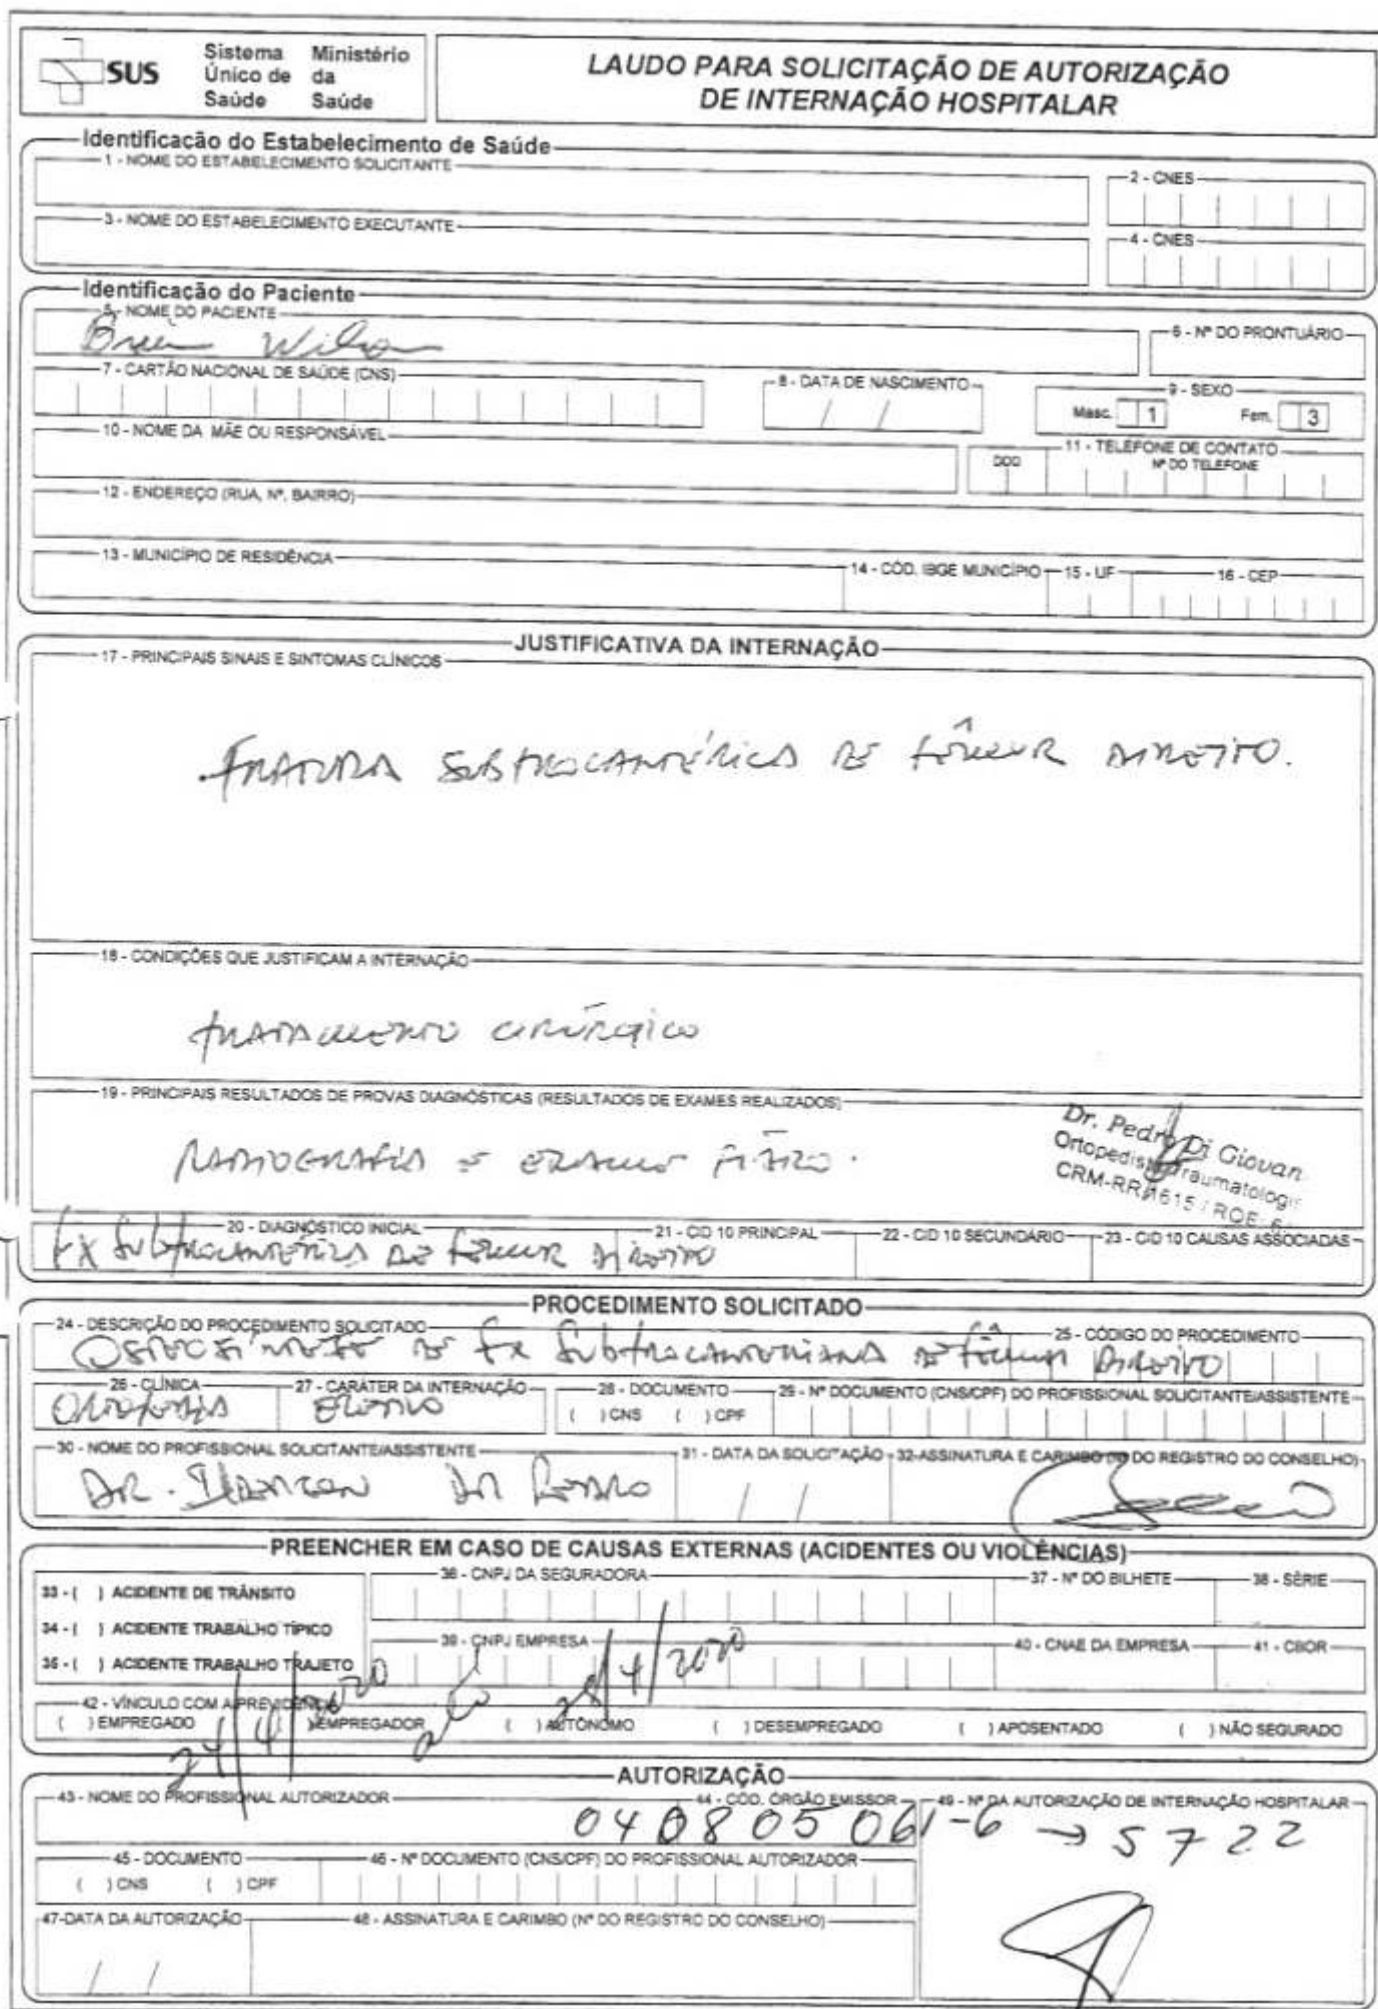 SUS
Sistema Único de Saúde
Ministério da Saúde
LAUDO PARA SOLICITAÇÃO DE AUTORIZAÇÃO
DE INTERNAÇÃO HOSPITALAR
Identificação do Estabelecimento de Saúde
1 - NOME DO ESTABELECIMENTO SOLICITANTE
2 - CNES
3 - NOME DO ESTABELECIMENTO EXECUTANTE
4 - CNES
Identificação do Paciente
5 - NOME DO PACIENTE
6 - Nº DO PRONTUÁRIO
Wilson
7 - CARTÃO NACIONAL DE SAÚDE (CNS)
8 - DATA DE NASCIMENTO
9 - SEXO
/ /
Masc. 1 Fem. 3
10 - NOME DA MÃE OU RESPONSÁVEL
11 - TELEFONE DE CONTATO
DDD Nº DO TELEFONE
12 - ENDEREÇO (RUA, Nº, BAIRRO)
13 - MUNICÍPIO DE RESIDÊNCIA
14 - CÓD. IBGE MUNICÍPIO
15 - UF
16 - CEP
JUSTIFICATIVA DA INTERNAÇÃO
17 - PRINCIPAIS SINAIS E SINTOMAS CLÍNICOS
FRATURA SUBTROCANTÉRICA DE FÊMUR DIREITO.
18 - CONDIÇÕES QUE JUSTIFICAM A INTERNAÇÃO
TRATAMENTO CIRÚRGICO
19 - PRINCIPAIS RESULTADOS DE PROVAS DIAGNÓSTICAS (RESULTADOS DE EXAMES REALIZADOS)
RADIOGRAFIA E EXAME FÍSICO.
Dr. Pedro Di Giovan
Ortopedista Traumatologi
CRM-RR 1615 / RQE
20 - DIAGNÓSTICO INICIAL
21 - CID 10 PRINCIPAL
22 - CID 10 SECUNDÁRIO
23 - CID 10 CAUSAS ASSOCIADAS
FX SUBTROCANTÉRICA DE FÊMUR DIREITO
PROCEDIMENTO SOLICITADO
24 - DESCRIÇÃO DO PROCEDIMENTO SOLICITADO
25 - CÓDIGO DO PROCEDIMENTO
OSTEOSÍNTESE DE FX SUBTROCANTERIANA DE FÊMUR DIREITO
26 - CLÍNICA
27 - CARÁTER DA INTERNAÇÃO
28 - DOCUMENTO
29 - Nº DOCUMENTO (CNS/CPF) DO PROFISSIONAL SOLICITANTE/ASSISTENTE
ORTOPEDIA ELETIVO
( ) CNS ( ) CPF
30 - NOME DO PROFISSIONAL SOLICITANTE/ASSISTENTE
31 - DATA DA SOLICITAÇÃO
32-ASSINATURA E CARIMBO (Nº DO REGISTRO DO CONSELHO)
DR.
/ /
PREENCHER EM CASO DE CAUSAS EXTERNAS (ACIDENTES OU VIOLÊNCIAS)
33 - ( ) ACIDENTE DE TRÂNSITO
36 - CNPJ DA SEGURADORA
37 - Nº DO BILHETE
38 - SÉRIE
34 - ( ) ACIDENTE TRABALHO TÍPICO
39 - CNPJ EMPRESA
40 - CNAE DA EMPRESA
41 - CBOR
35 - ( ) ACIDENTE TRABALHO TRAJETO
24/4/2020 até 28/4/2020
42 - VÍNCULO COM A PREVIDÊNCIA
( ) EMPREGADO ( ) EMPREGADOR ( ) AUTÔNOMO ( ) DESEMPREGADO ( ) APOSENTADO ( ) NÃO SEGURADO
AUTORIZAÇÃO
43 - NOME DO PROFISSIONAL AUTORIZADOR
44 - CÓD. ÓRGÃO EMISSOR
49 - Nº DA AUTORIZAÇÃO DE INTERNAÇÃO HOSPITALAR
040805061-6 → 5722
45 - DOCUMENTO
46 - Nº DOCUMENTO (CNS/CPF) DO PROFISSIONAL AUTORIZADOR
( ) CNS ( ) CPF
47-DATA DA AUTORIZAÇÃO
48 - ASSINATURA E CARIMBO (Nº DO REGISTRO DO CONSELHO)
/ /